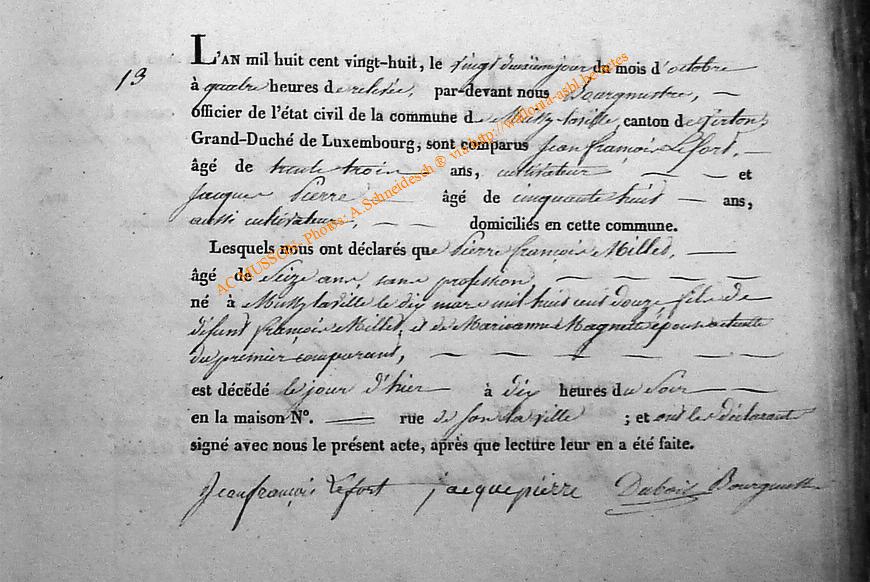 13
L'AN mil huit cent vingt-huit, le vingt deuxième jour du mois d'octobre
à quatre heures de relevée, par-devant nous Bourgmestre, —
officier de l'état civil de la commune de Mussy-laville, canton de Virton,
Grand-Duché de Luxembourg, sont comparus Jean françois Lefort, —
âgé de trente trois — ans, cultivateur — — et
Jacques Pierre — âgé de cinquante huit — ans,
aussi cultivateur, — — domiciliés en cette commune.
Lesquels nous ont déclarés que Pierre françois Millet, —
âgé de Seize ans, sans profession — — — —
né à Mussy laville le dix mars mil huit cent douze fils de
défunt françois Millet, et de Marianne Magnette épouse actuelle
du premier comparant, — — — — —
est décédé le jour d'hier — à dix heures du Soir — —
en la maison N°. — rue de fon la ville ; et ont les déclarants
signé avec nous le présent acte, après que lecture leur en a été faite.
Jean françois Lefort jacque pierre Dubois Bourgmest
AC MUSSON - Photos: A. Schneidesch ® via http://wallonia-asbl.be/actes